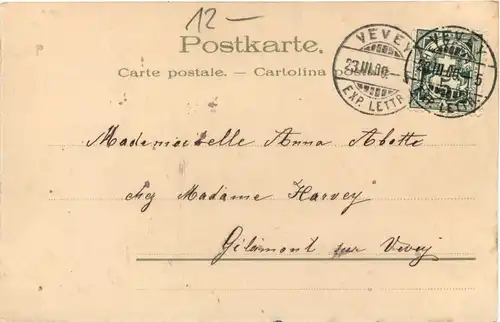 12 —
Postkarte.
Carte postale. — Cartolina postale
VEVEY
23.III.00
EXP. LETTR.
VEVEY
23.III.00
5
EXP. LETTR.
Mademoiselle Anna Abotte
chz Madame Harvey
Gilamont sur Vevey